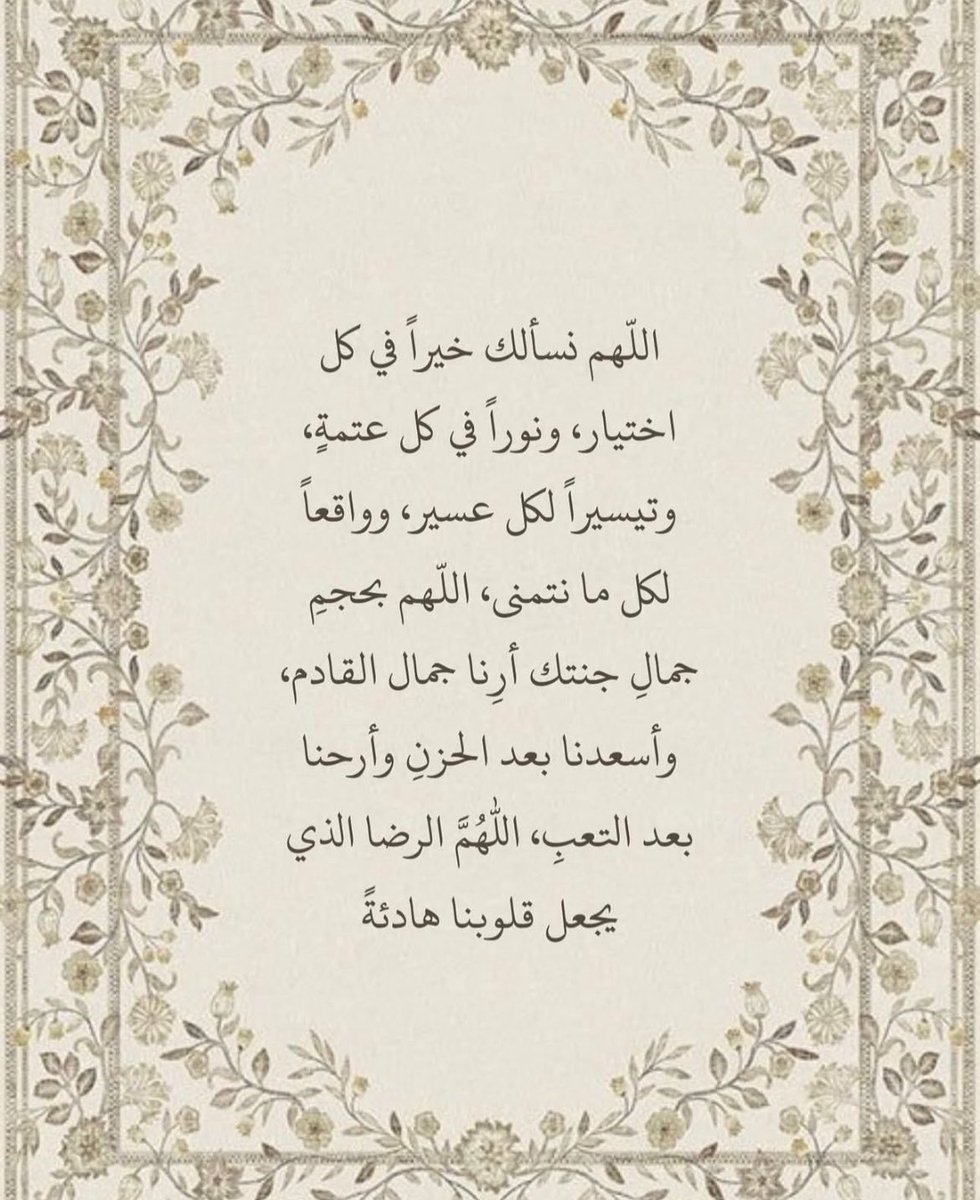 اللّهم نسألك خيراً في كل
اختيار، ونوراً في كل عتمةٍ،
وتيسيراً لكل عسير، وواقعاً
لكل ما نتمنى، اللّهم بحجمِ
جمالِ جنتك أرِنا جمال القادم،
وأسعدنا بعد الحزنِ وأرحنا
بعد التعبِ، اللّٰهُمَّ الرضا الذي
يجعل قلوبنا هادئةً